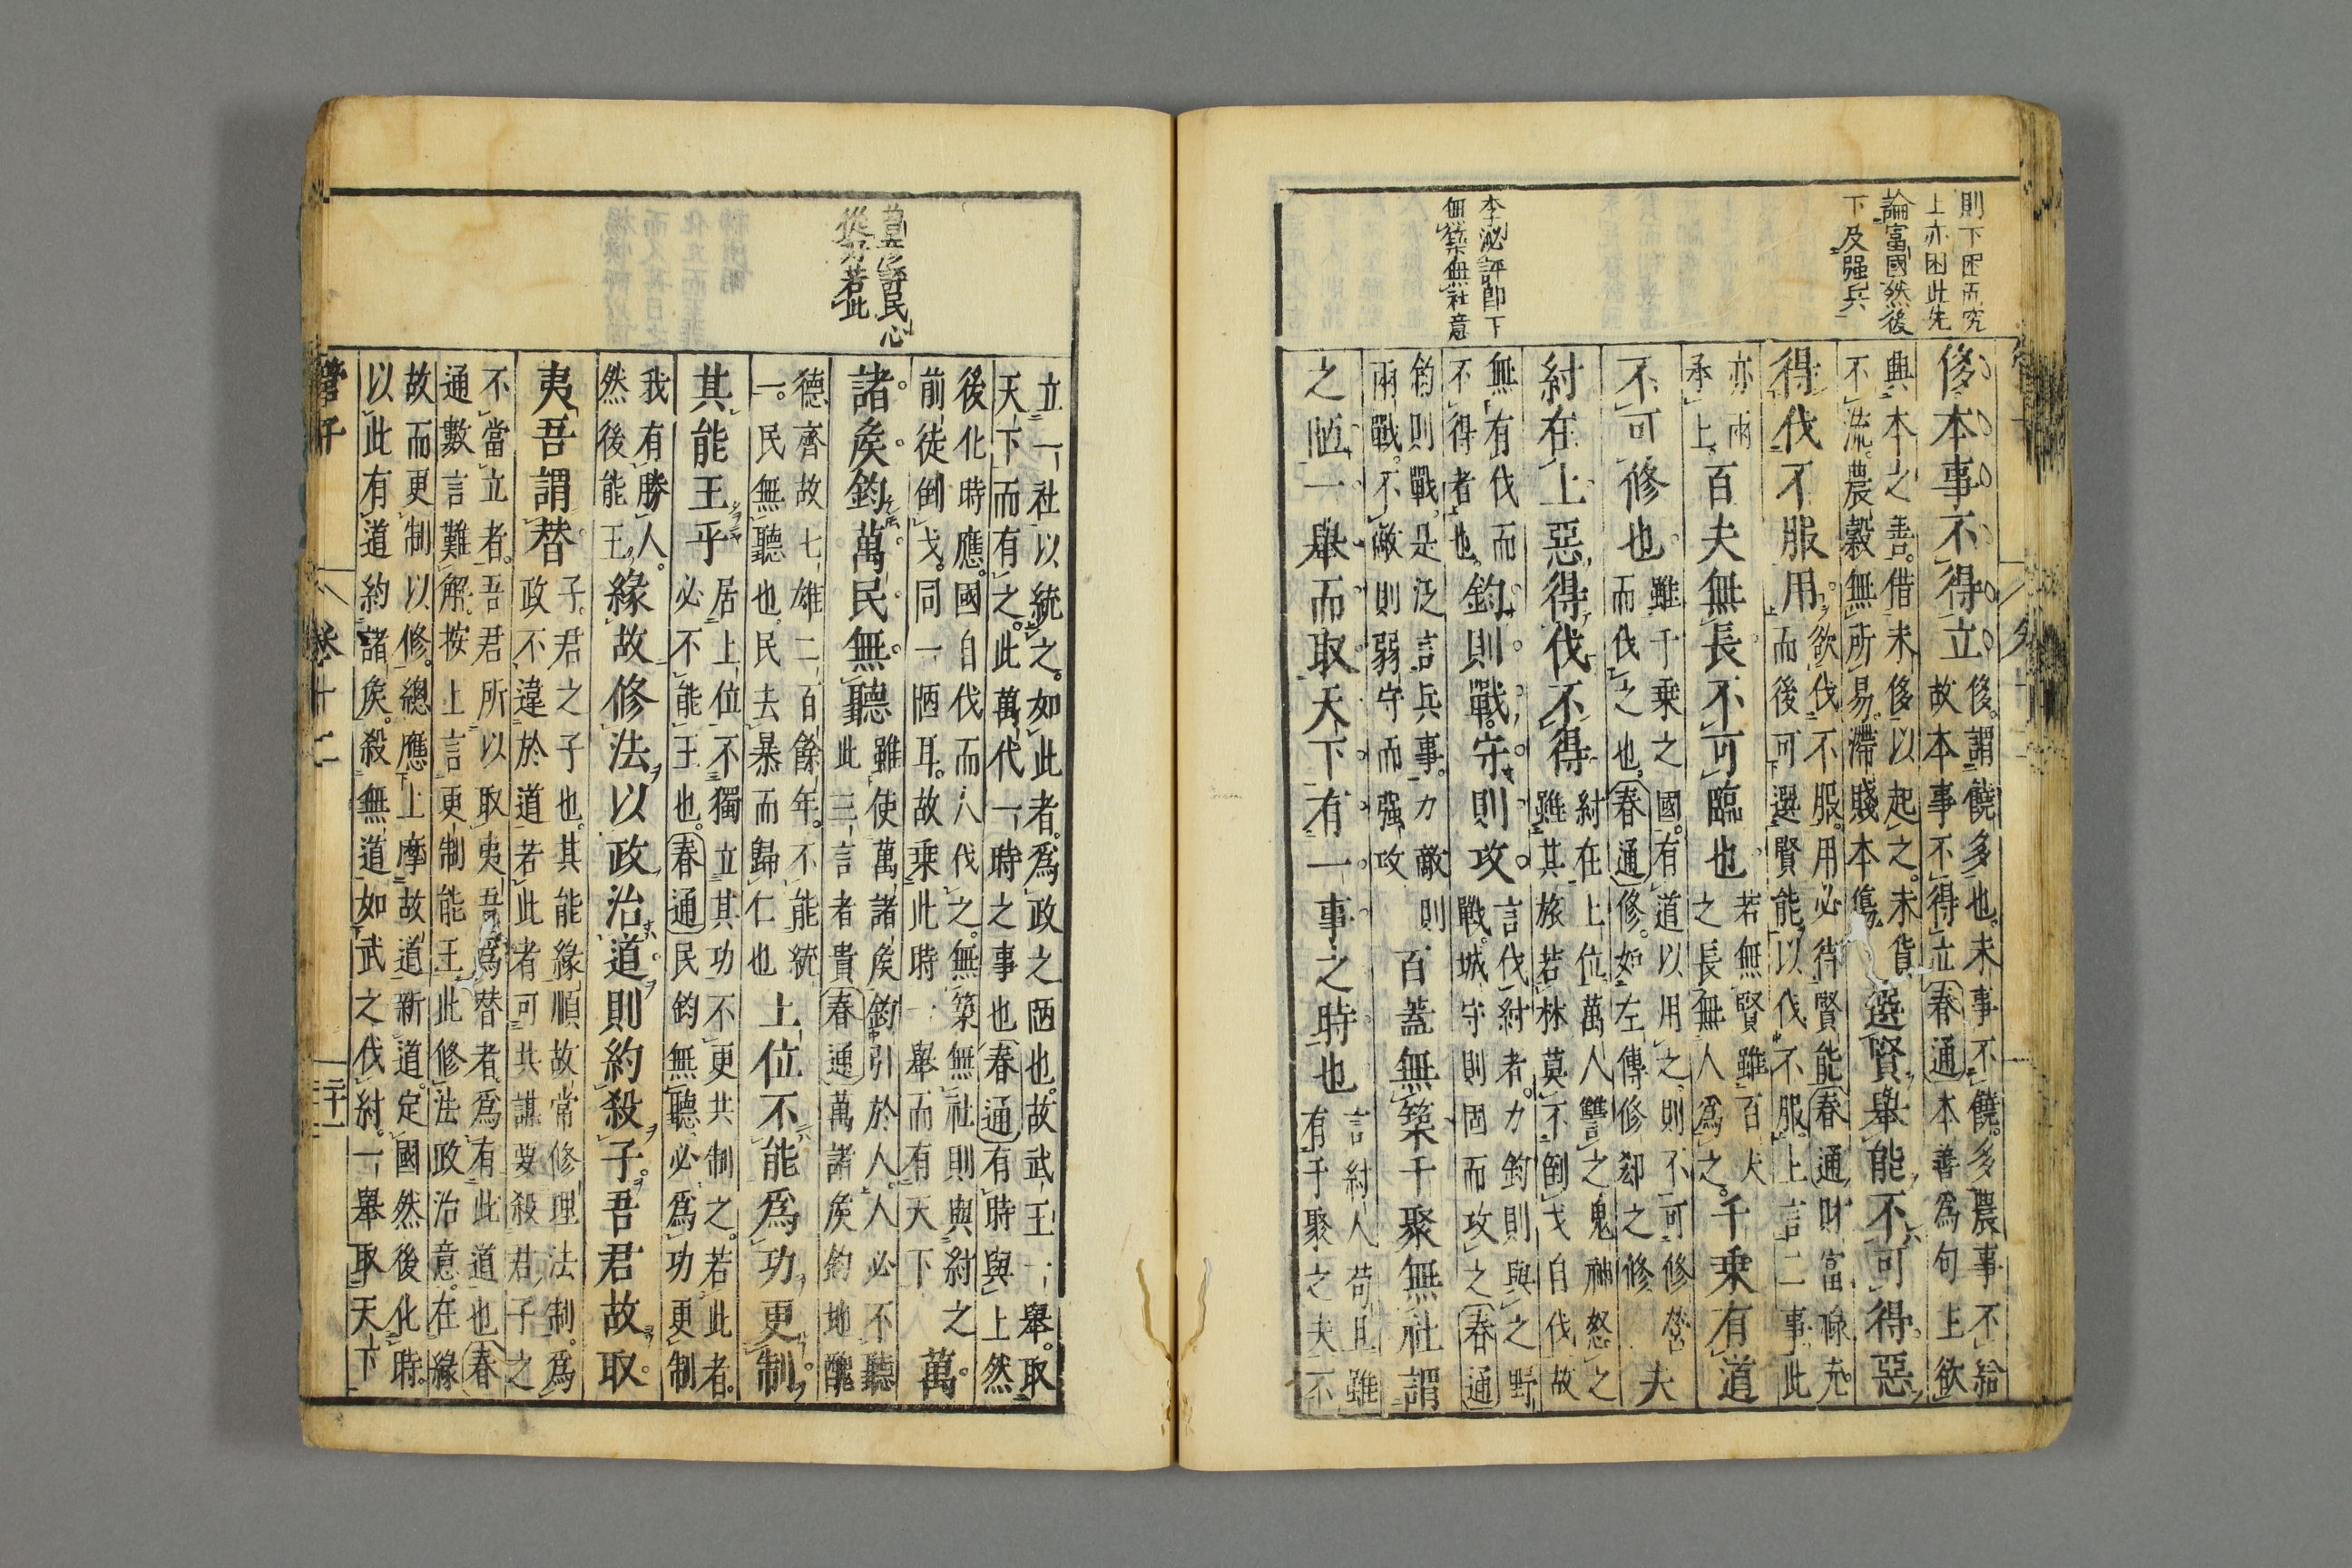 則下困而究
上亦困此先
論富國然後
下及强兵
李泌評卽下
無築無社意
侈本事不得立
侈。謂饒多也。未事不饒。多農事不給
故本事不得立春通本善為句上欲
典本之善。借末侈以起之。末貨
不流。農穀無所易。滯賤本傷
選賢舉能不可得惡
得伐不服用
欲伐不服。用必待賢能春通財富祿充。
而後可選賢能以伐不服。上言二事此
亦兩
承上。
百夫無長不可臨也
若無賢雖百夫
之長無人為之。
千乗有道
不可修也
雖千乗之國。有道以用之則不可修营
而伐之也。春通修。如左傳修郤之修
夫
紂在上惡得伐不得
紂在上位萬人讐之鬼神怒之
雖其旅若林莫不倒戈自伐故
無有伐而
不得者也。
鈞則戰。守則攻
言伐紂者。力鈞則與之野
戰。城守則固而攻之春通
鈞則戰。是泛言兵事。力敵則
兩戰。不敵則弱守而强攻
百蓋無築千聚無社謂
之陋一舉而取天下有一事之時也
言紂人苟且雖
有千聚之夫不
評民心
從若此
立一社以統之。如此者。為政之陋也。故武王一舉。取
天下而有之。此萬代一時之事也春通有時與上然
後化時應。國自伐而八伐之。無築無社則與紂之
前徒倒戈。同一陋耳。故乗此時一舉而有天下
萬
諸矦鈞萬民無聽
雖使萬諸矦鈞引於人人必不聽
此三言者貴春通萬諸矦鈞地醜
德齊故七雄二百餘年。不能統
一。民無聽也。民去暴而歸仁也
上位不能為功更制
其能王乎
居上位不獨立其功不更共制之。若此者。
必不能王也。春通民鈞無聽必為功更制
我有勝人。
然後能王。
緣故修法以政治道則約殺子吾君故取
夷吾謂替
子。君之子也。其能緣順故常修理法制。為
政不違於道若此者可共謀要殺君子之
不當立者。吾君所以取夷吾為替者。為有此道也春
通數言難解。按上言更制能王此修法政治意。在緣
故而更制以修。總應上摩故道新道。定國然後化時。
以此有道約諸矦。殺無道如武之伐紂。一舉取天下
管子 卷十二